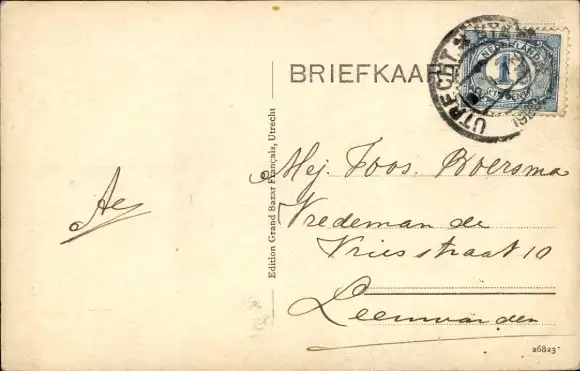 BRIEFKAART
UTRECHT
NEDERLAND
1
CENT
Mej. Joos. Boersma
Vredeman de
Vriesstraat 10
Leeuwarden
Ae
Edition Grand Bazar Français, Utrecht
26823